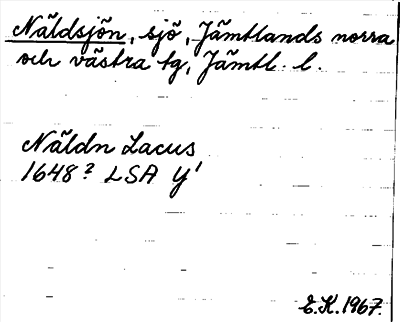 Näldsjön, sjö, Jämtlands norra
och västra tg, Jämtl. l.
Näldn Lacus
1648? LSA Y'
E.K. 1967.